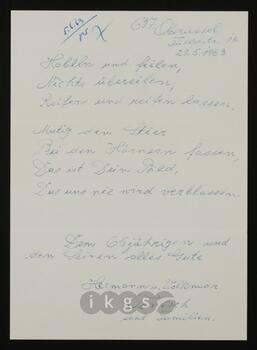 5.6.63
637 Oberursel
21.5.1963
Hobeln und feilen,
Nichts übereilen,
Reifen und reifen lassen,
Mutig den Stier
Bei den Hörnern fassen,
Das ist Dein Bild,
Das uns nie wird verblassen.
Dem 65jährigen und
den Seinen alles Gute
Hermann u. Volkmar
samt Familien.
ikgs